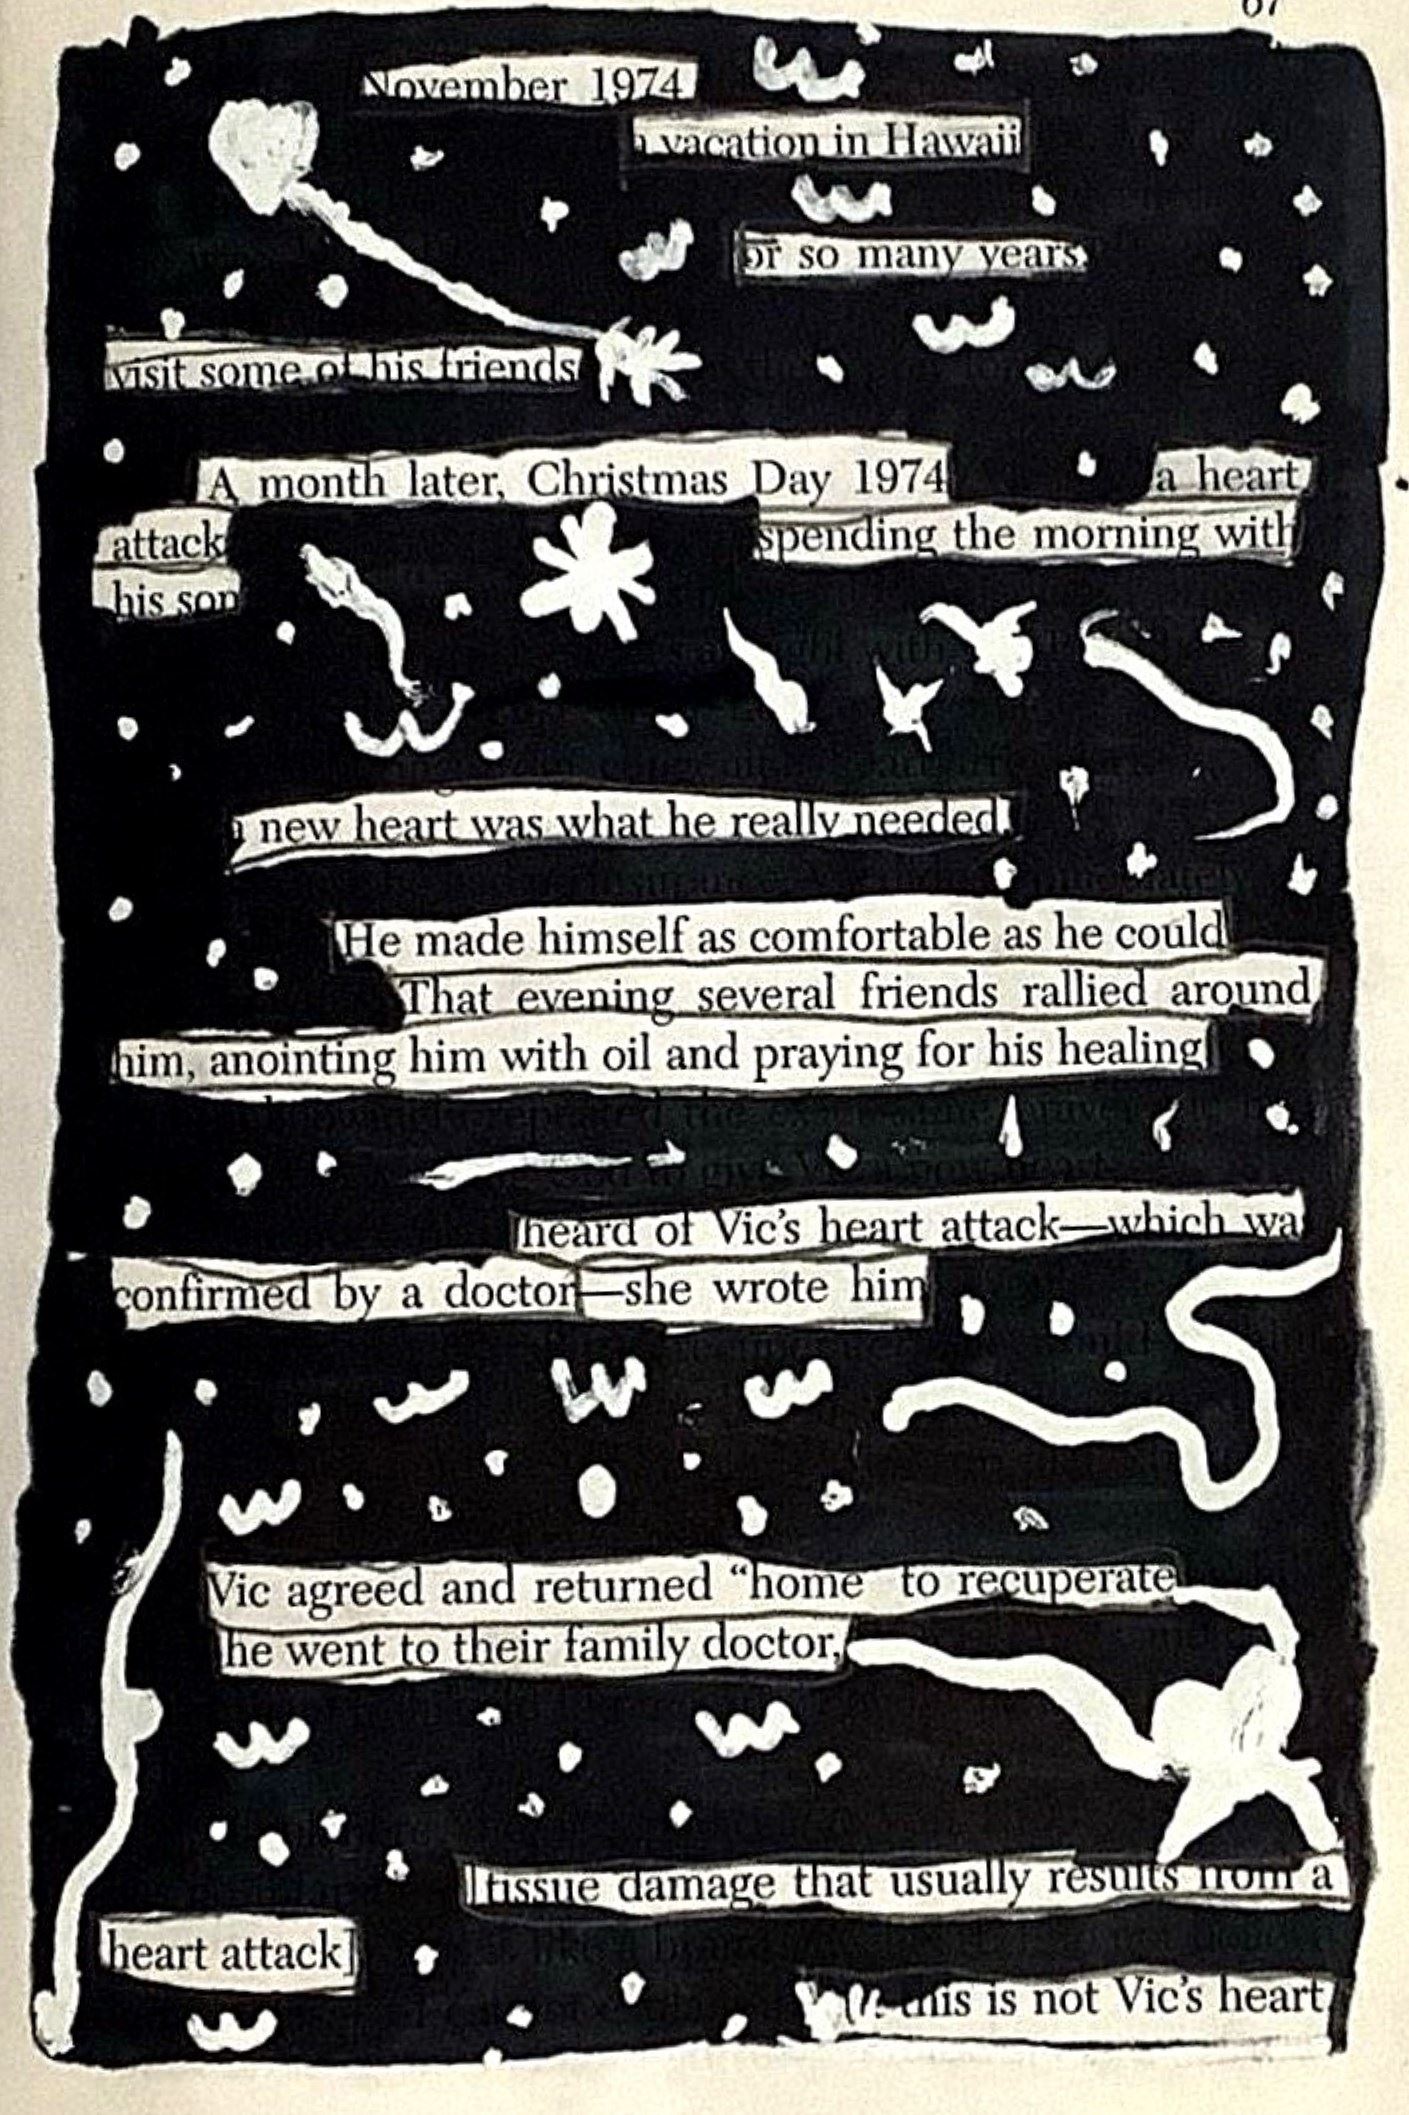 November 1974
vacation in Hawaii
or so many years
visit some of his friends
A month later, Christmas Day 1974 a heart
attack spending the morning with
his son
new heart was what he really needed
He made himself as comfortable as he could
That evening several friends rallied around
him, anointing him with oil and praying for his healing
heard of Vic's heart attack—which wa
confirmed by a doctor—she wrote him
Vic agreed and returned “home to recuperate
he went to their family doctor,
tissue damage that usually results from a
heart attack]
this is not Vic's heart